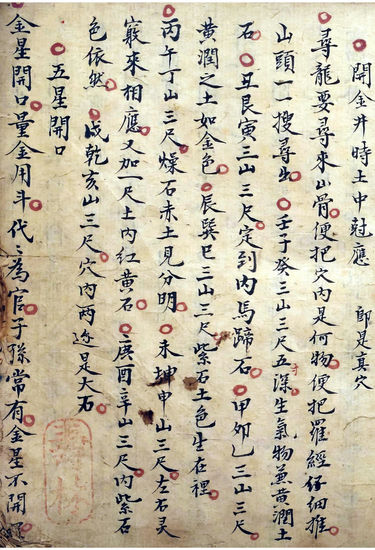 開金井時土中尅應 即是真穴
尋龍要尋來山骨便把穴内是何物便把羅經仔細推
山頭一一搜尋出 壬子癸三山三尺五寸深生氣物兼黄潤土
石 丑艮寅三山三尺定到内馬蹄石 甲卯乙三山三尺
黄潤之土如金色 辰巽巳三山三尺紫石土色生在裡
丙午丁山三尺燥石赤土見分明 未坤申山三尺左右灵
竅來相應又加一尺土内紅黄石 庚酉辛山三尺内紫石
色依然 戌乾亥山三尺穴内兩边是大石
五星開口
金星開口量金用斗代〻為官子孫常有金星不開